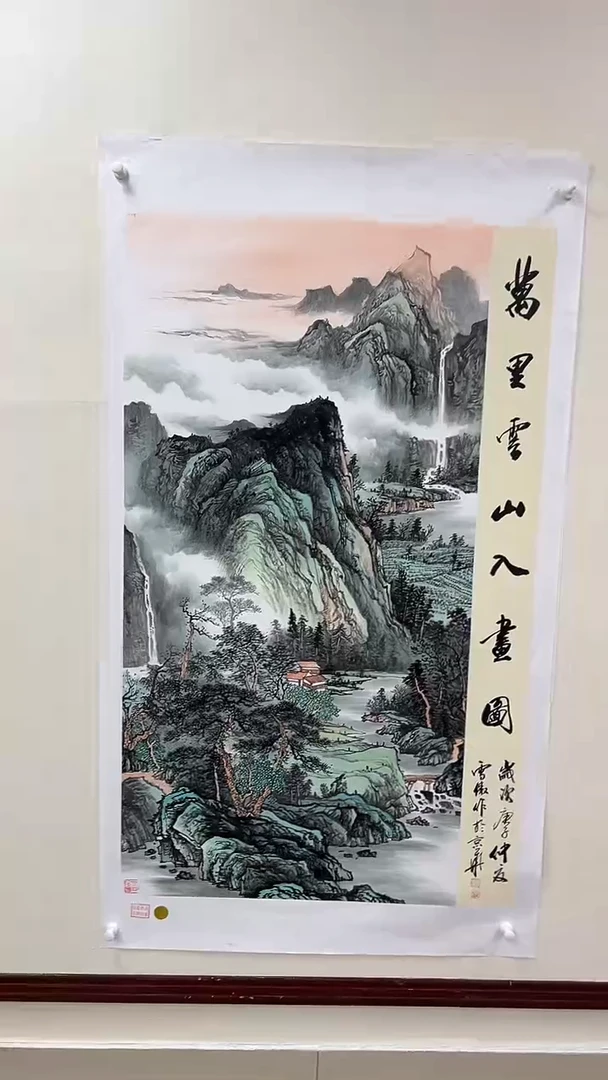 萬里雲山入畫圖
歲次庚子仲夏
雪傲作於京華